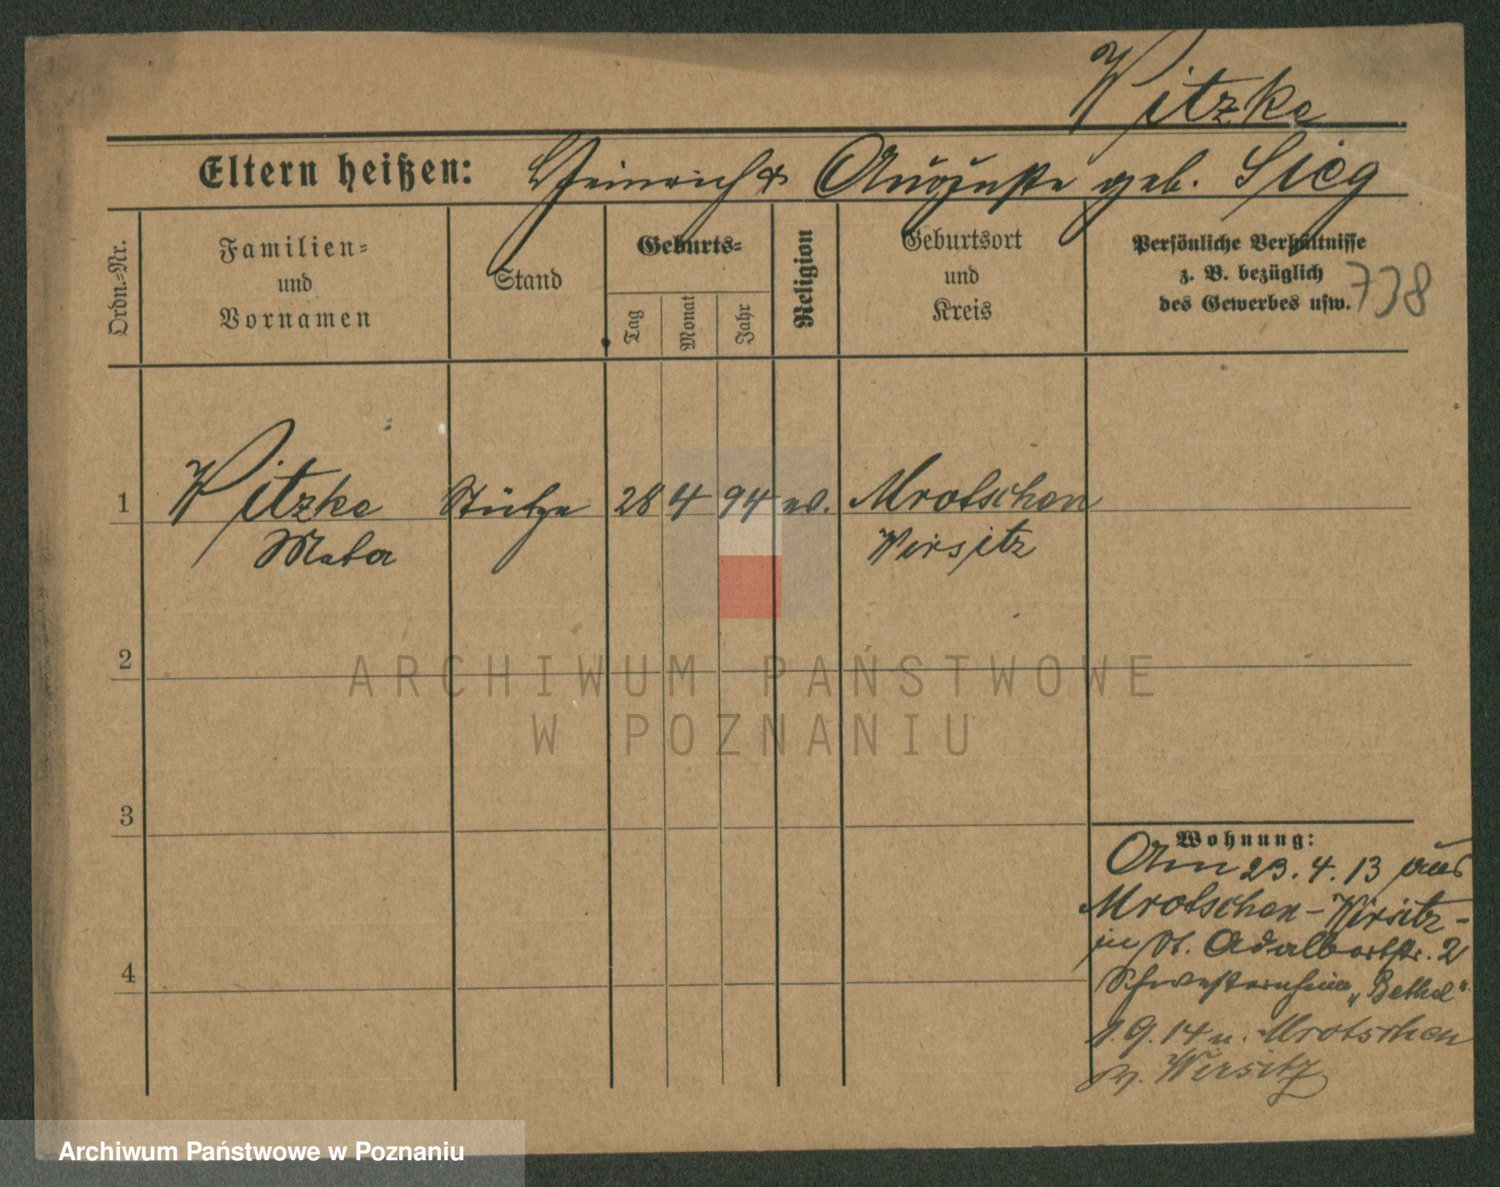 Witzke
Eltern heißen: Heinrich & Auguste geb. Sieg
Ordn.-Nr.
Familien-
und
Vornamen
Stand
Geburts-
Tag
Monat
Jahr
Religion
Geburtsort
und
Kreis
Persönliche Verhältnisse
z. B. bezüglich
des Gewerbes usw.
738
1 Witzke Stütze 28 4 94 ev. Mrotschen
Meta Wirsitz
2
ARCHIWUM PAŃSTWOWE
W POZNANIU
3
Wohnung:
Am 23.4.13 aus
Mrotschen-Wirsitz-
in Adalbertstr. 2
Schwesternheim „Bethel“
1.9.14 n. Mrotschen
Wirsitz
4
Archiwum Państwowe w Poznaniu